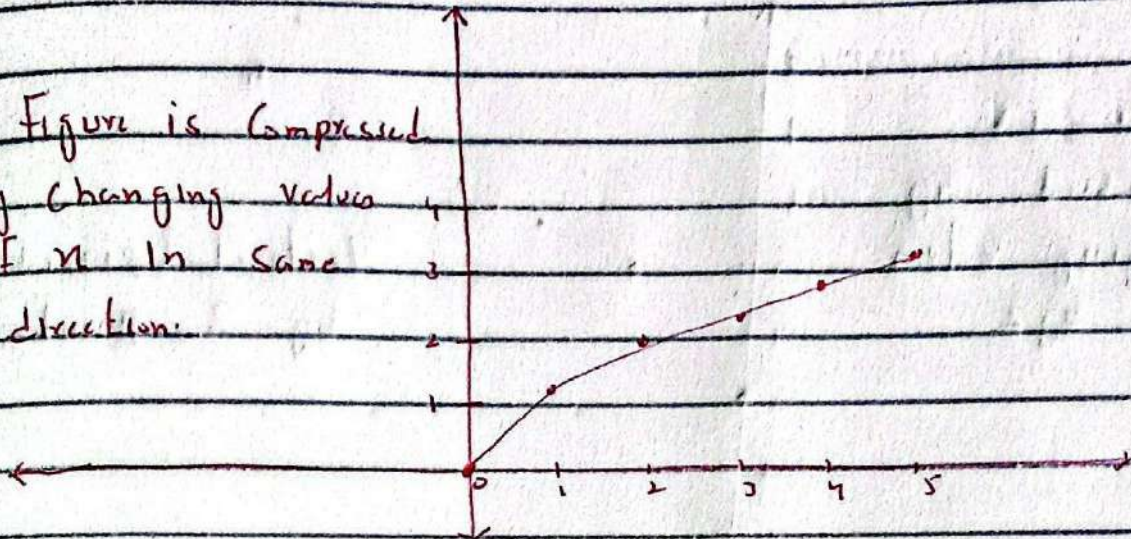 Figure is Compressed
changing values
n in same
direction.
4
3
2
1
0 1 2 3 4 5